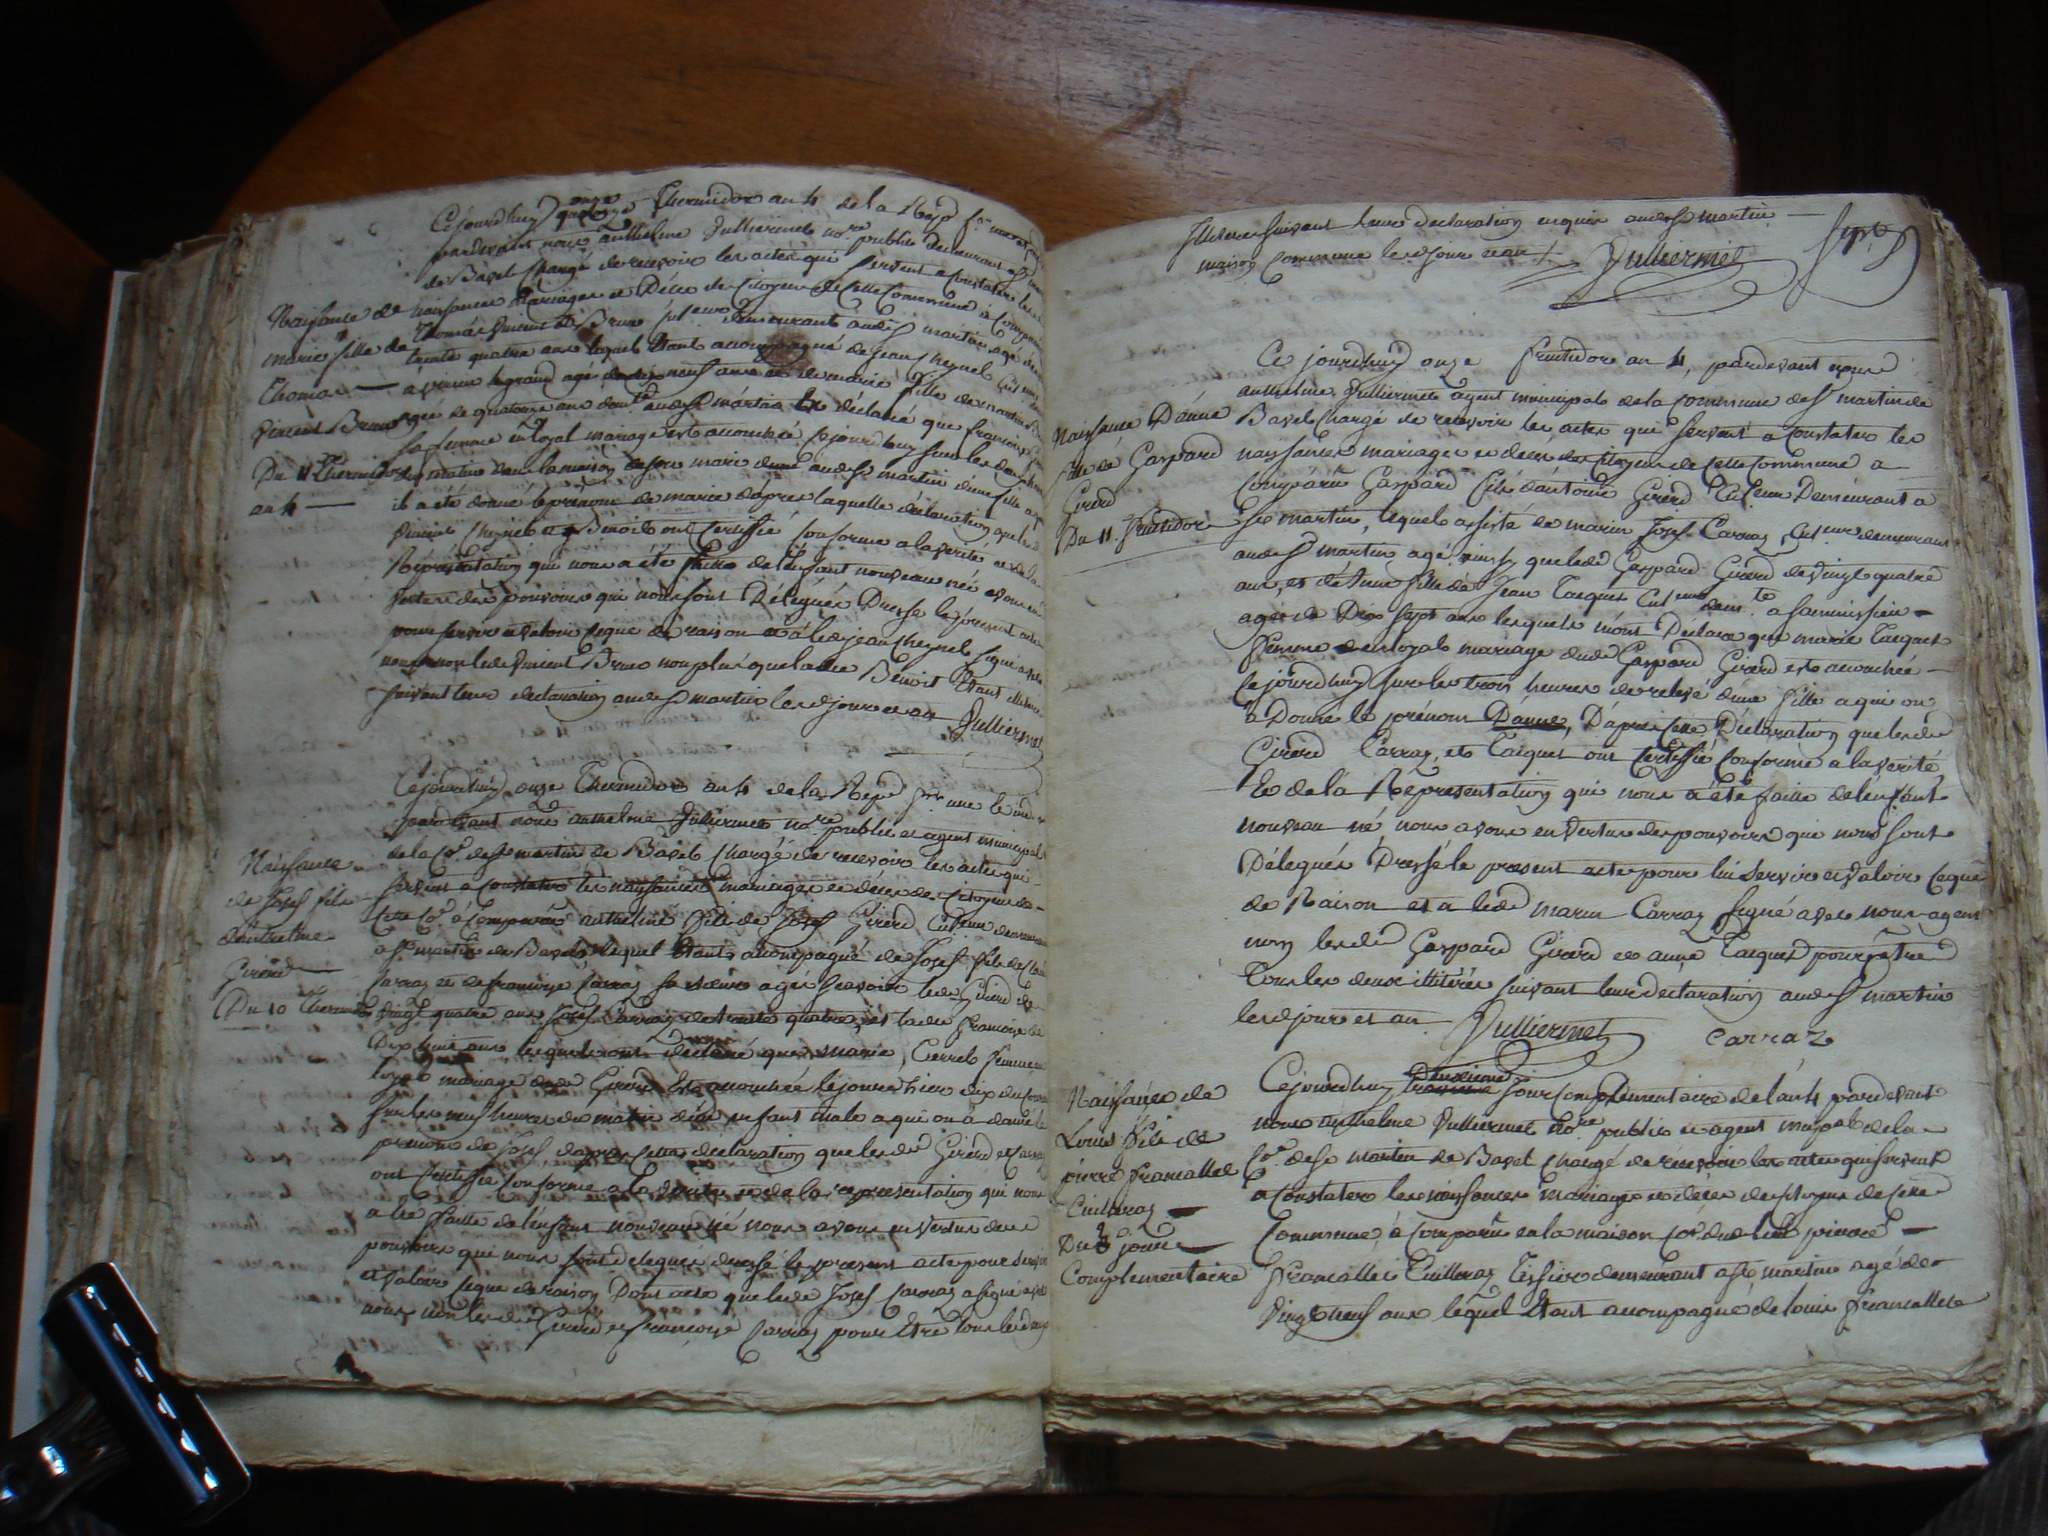 Cejourdhuy onze Thermidor an 4 de la Rep
pardevant nous authelme Julliermet no.re public demeurant
de Bavel chargé de recevoir les actes qui servent a constater les
naissances mariages et Déces des Citoyens de cette Commune à comparu
Naissance de
marie fille de
Thomas
vincent Brun
Du 11 Thermidor
an 4
Thomas vincent Brun demeurant audit st martin agé de
trente quatre ans lequel étant accompagné de jean cheynel
legrand agé neuf ans et de marie fille de
agée de quatorze ans audit st martin a déclaré que francoise
sa femme en loyal mariage est accouchée cejourdhuy sur les
du matin dans la maison de son mari audit st martin dune fille a
il a été donné le prénom de marie daprés laquelle déclaration que
vincent cheynel et Benoit ont certiffié conforme a la verité et de la
Représentation qui nous a été faitte de lenfant nouveau né avons en
vertu des pouvoirs qui nous sont Délégués Dressé le présent acte
pour servir et valoir ceque de raison et à ledit jean cheynel signé avec
nous non ledit vincent Brun non plus que ladite Benoit étant illitere
suivant leur declaration audit st martin lesd jour et an Julliermet
Naissance
de Josef fils
dauthelme
Girerd
Du 10 Thermidor
Cejourdhuy onze Thermidor an 4 de la Rep une et ind
pardevant nous authelme Julliermet no.re public et agent municipal
de la Co.e de st martin de Bavel chargé de recevoir les actes qui
servent a constater les naissances mariages et déces des Citoyens de
cette Co.e à comparu authelme fils de Josef Girerd Cult.eur demeurant
a st martin de Bavel lequel étant acompagné de Josef fils de
Carraz et de francoise Carraz sa soeur agés scavoir ledit Girerd de
vingt quatre ans Josef Carraz de trente quatre, et ladite francoise de
Dix huit ans lesquels ont déclaré que marie Cerrel femme en
loyal mariage dudit Girerd est accouchée le jour dhier dix du
sur les neuf heures du matin dun enfant male a qui on à donné le
prenom de Josef daprés cette declaration que lesdit Girerd et Carraz
ont certiffié conforme a la verité et de la représentation qui nous
a été faitte de lenfant nouveau né nous avons en vertu des
pouvoirs qui nous sont delegués dressé le present acte pour servir
et valoir ceque de raison Dont acte que ledit Josef Carraz a signé avec
nous non lesdit Girerd et francoise Carraz pour être tous les deux
illiteres suivant leur declaration enquis audit st martin
maison commune lesd jour et an Julliermet
Naissance Danne
fille de Gaspard
Girerd
Du 11 fructidor
Ce jourdhuy onze fructidor an 4, pardevant nous
authelme Julliermet agent municipal de la commune de st martin de
Bavel chargé de recevoir les actes qui servent a constater les
naissances mariages et deces des citoyens de cette commune a
comparu Gaspard fils dantoine Girerd Cult.eur Demeurant a
st martin, lequel assisté de marin Josef Carraz, Cult.eur demeurant
audit st martin agé ainsy que ledit Gaspard Girerd de vingt quatre
ans, et dAnne fille de Jean Tacquet Cult.eur dem.te a
agée de Dix sept ans lesquels m'ont Déclaré que marie Tacquet
femme en loyal mariage dudit Gaspard Girerd est accouchée
cejourdhuy sur les trois heures de relevé dune fille a qui on
à Donné le prénom Danne, Daprés cette Déclaration que lesdit
Girerd Carraz, et Tacquet ont certiffié conforme a la verité
Et de la Représentation qui nous a été faitte de lenfant
nouveau né nous avons en vertu des pouvoirs qui nous sont
Délegués Dressé le present acte pour lui servir et valoir ceque
de Raison et a ledit marin Carraz signé avec nous agent
non lesdit Gaspard Girerd et anne Tacquet pour être
Tous les deux illitérés suivant leur declaration audit st martin
lesd jour et an Julliermet carraz
Naissance de
Louis fils de
pierre francallet
Cuilleraz
Du 2 jour
Complementaire
Cejourdhuy Deuxieme jour complementaire de l'an 4 pardevant
nous authelme Julliermet no.re public et agent mupal de la
Co.e de st martin de Bavel chargé de recevoir les actes qui servent
a constater les naissances mariages et déces des citoyens de cette
Commune, à comparu en la maison co.e dudit lieu pierre
francallet Cuilleraz Tissier demeurant a st martin agé de
vingt neuf ans lequel étant acompagné de louis francallet